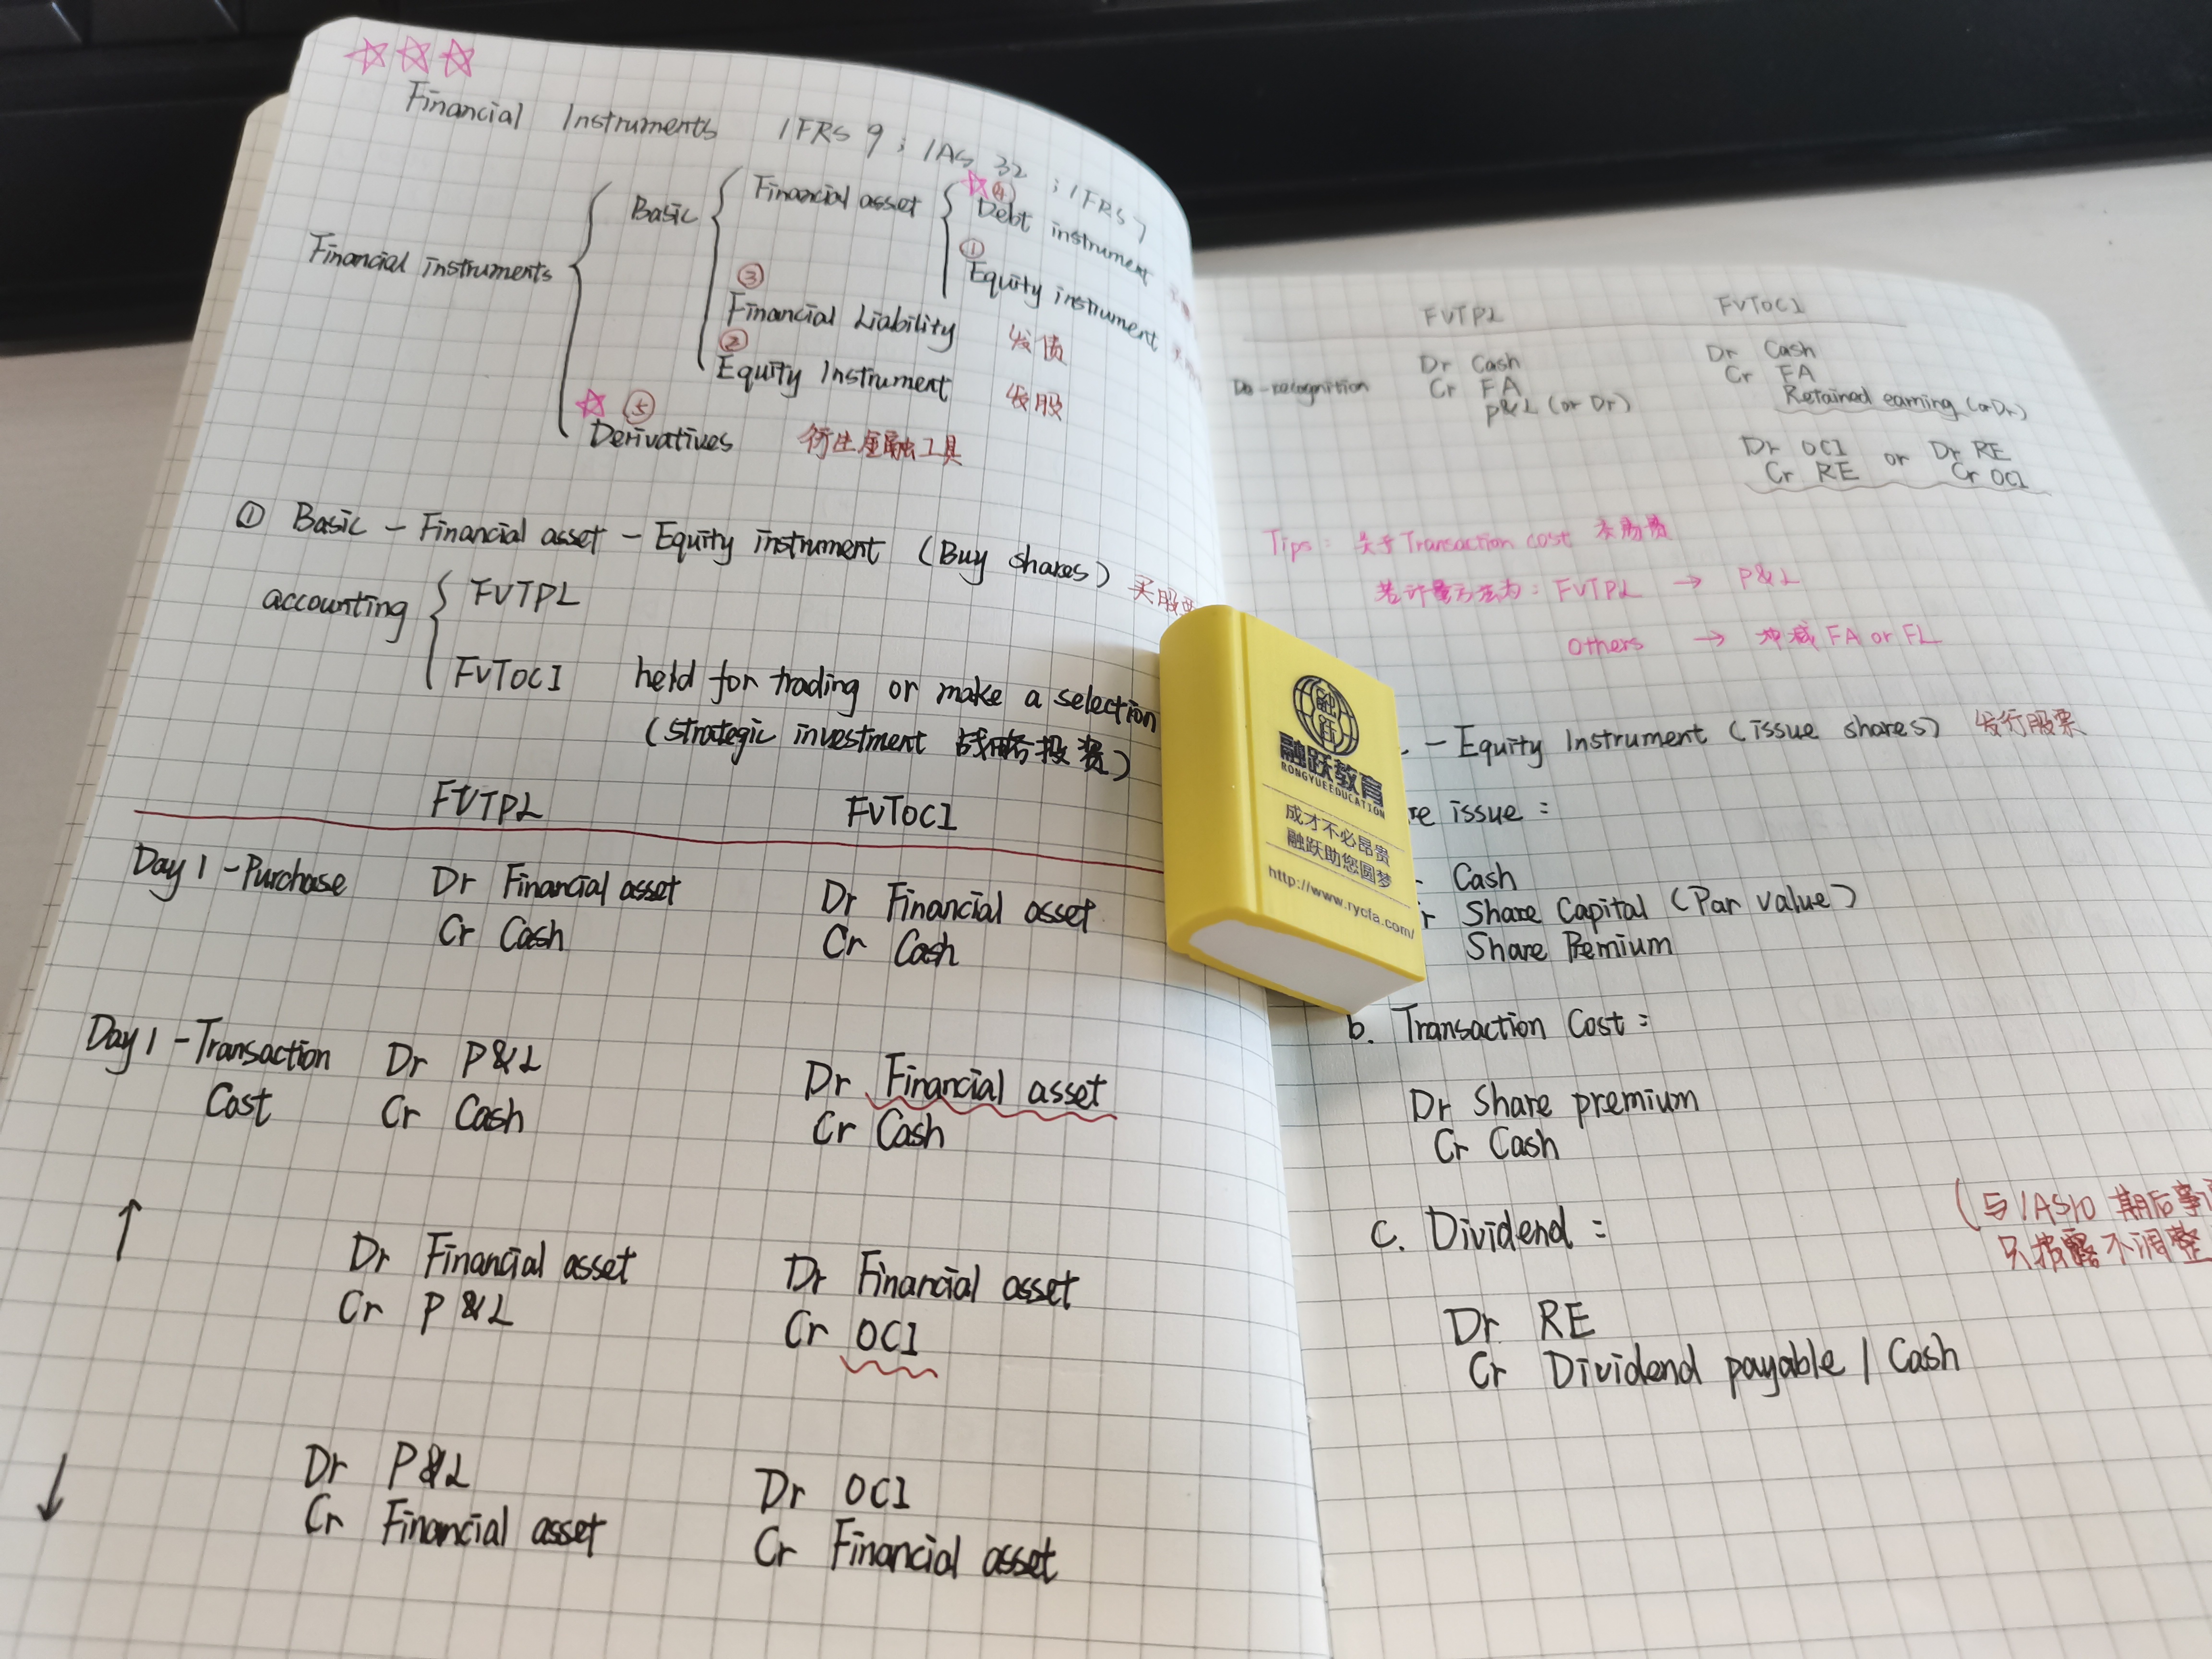 Financial Instruments IFRS 9 ; IAS 32 ; IFRS 7
Financial instruments
Basic
Financial asset
④
Debt instrument
①
Equity instrument
③
Financial Liability 发债
②
Equity Instrument 发股
⑤
Derivatives 衍生金融工具
① Basic - Financial asset - Equity instrument (Buy shares) 买股
accounting
FVTPL
FVTOCI held for trading or make a selection
(strategic investment 战略投资)
FVTPL FVTOCI
Day 1 - Purchase Dr Financial asset Dr Financial asset
Cr Cash Cr Cash
Day 1 - Transaction Cost Dr P&L Dr Financial asset
Cr Cash Cr Cash
↑ Dr Financial asset Dr Financial asset
Cr P&L Cr OCI
↓ Dr P&L Dr OCI
Cr Financial asset Cr Financial asset
FVTPL FVTOCI
De-recognition Dr Cash Dr Cash
Cr FA Cr FA
P&L (or Dr) Retained earning (or Dr)
Dr OCI or Dr RE
Cr RE Cr OCI
Tips: 关于Transaction cost 交易费
若计量方法为: FVTPL → P&L
Others → 冲减 FA or FL
- Equity Instrument (issue shares) 发行股票
re issue:
Cash
r Share Capital (Par value)
Share Premium
b. Transaction Cost:
Dr Share premium
Cr Cash
c. Dividend: (与IAS10 期后事
只披露不调整
Dr RE
Cr Dividend payable / Cash
融跃
融跃教育
RONGYUEEDUCATION
成才不必昂贵
融跃助您圆梦
http://www.rycfa.com/